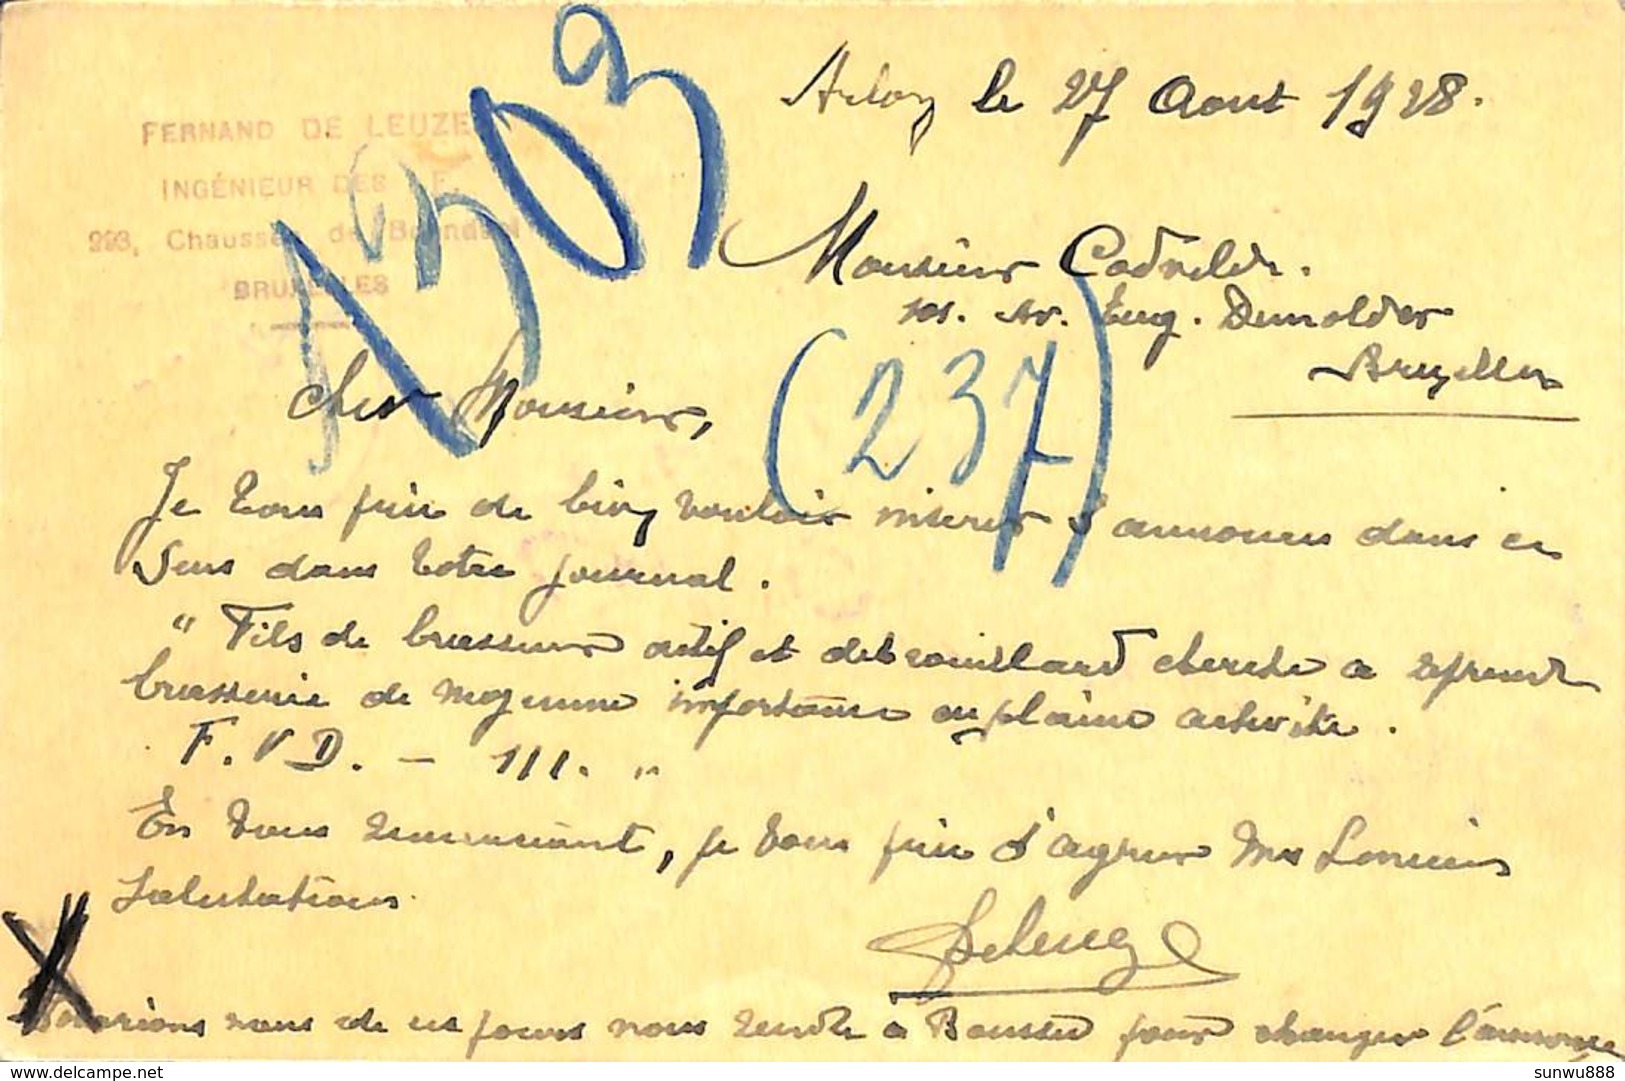 Arlon le 27 Aout 1928.
FERNAND DE LEUZE
INGÉNIEUR DES I. F.
293, Chaussée de Boendael
BRUXELLES
A503
Monsieur Cadvelder.
101. Av. Eug. Demolder
Bruxelles
(237)
Cher Monsieur,
Je vous prie de bien vouloir inserer l'annonce dans ce
sens dans votre journal.
" Fils de brasseur actif et debrouillard cherche a reprendre
brasserie de moyenne importance en plaine activité.
F. V D. - 111. "
En vous remerciant, je vous prie d'agreer mes sincères
salutations.
Deleuze
X
nous de ces jours nous rendre a Boussu pour changer l'annonce
sunwu888